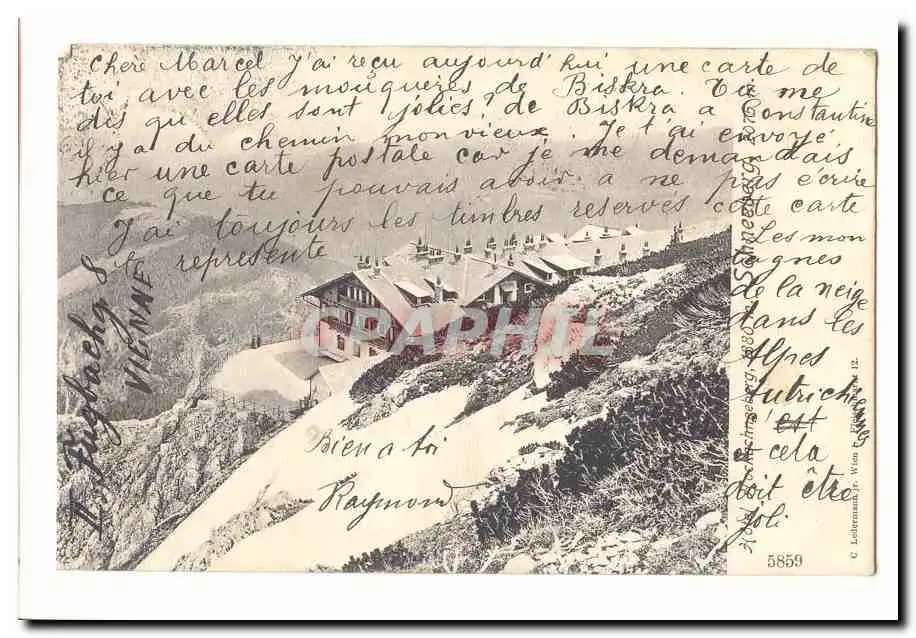 chere Marcel J'ai reçu aujourd'hui une carte de
toi avec les mouquères de Biskra. Tu me
dis qu'elles sont jolies, de Biskra a Constantine
il y a du chemin mon vieux. Je t'ai envoyé
hier une carte postale car je me demandais
ce que tu pouvais avoir a ne pas écrire
J'ai toujours les timbres reservés cette carte
te représente
Les mon
tagnes
de la neige
dans les
Alpes
Autrichiennes
s'est
et cela
doit être
joli
Bien a toi
Raymond
II Fugbachg 8
VIENNE
Schneeberg
C. Ledermann jr. Wien I. 12.
5859
CPAPHIL